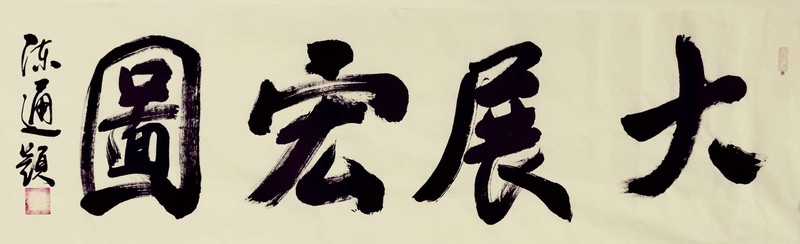 大展宏圖
陈通题